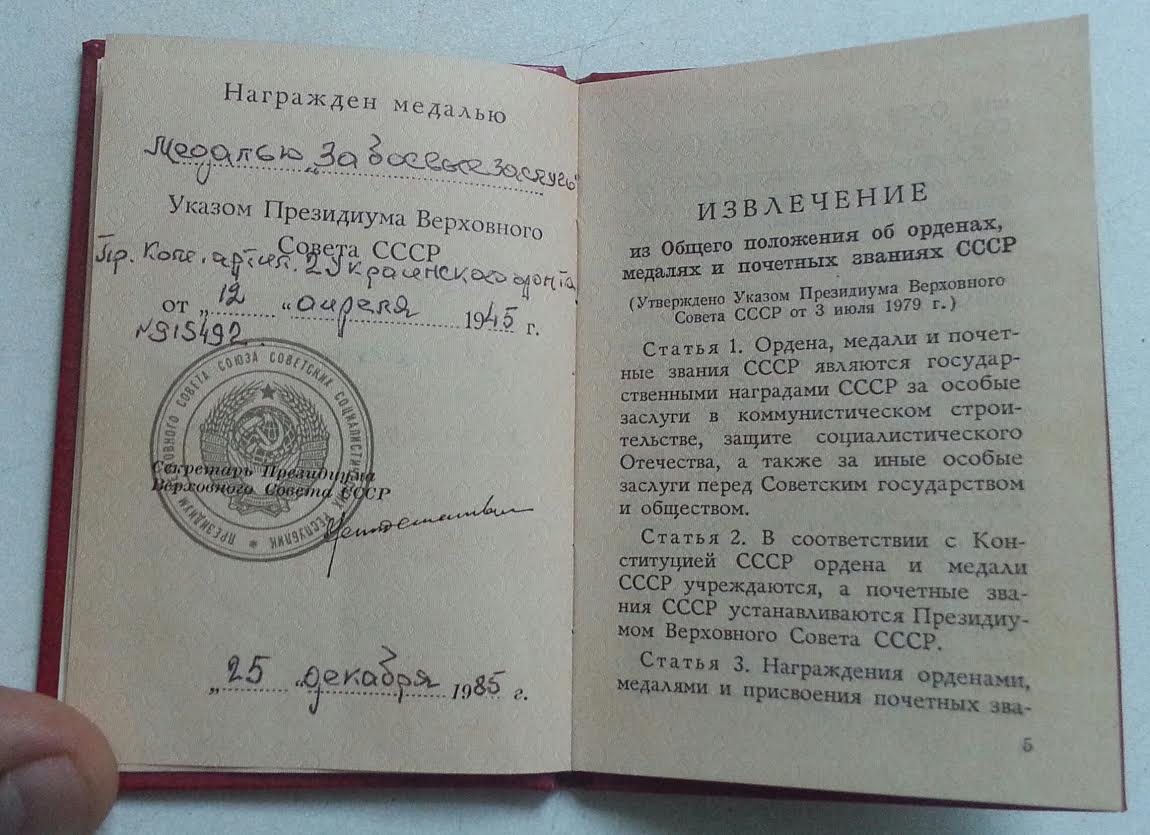 Награжден медалью
Медалью „За боевые заслуги"
Указом Президиума Верховного
Совета СССР
Пр. Ком. артил. 2 Украинского фронта
от „12 "апреля 1945 г.
N915492
ПРЕЗИДИУМ ВЕРХОВНОГО СОВЕТА СОЮЗА СОВЕТСКИХ СОЦИАЛИСТИЧЕСКИХ РЕСПУБЛИК
Секретарь Президиума
Верховного Совета СССР
„25 "декабря 1985 г.
ИЗВЛЕЧЕНИЕ
из Общего положения об орденах,
медалях и почетных званиях СССР
(Утверждено Указом Президиума Верховного
Совета СССР от 3 июля 1979 г.)
Статья 1. Ордена, медали и почет-
ные звания СССР являются государ-
ственными наградами СССР за особые
заслуги в коммунистическом строи-
тельстве, защите социалистического
Отечества, а также за иные особые
заслуги перед Советским государством
и обществом.
Статья 2. В соответствии с Кон-
ституцией СССР ордена и медали
СССР учреждаются, а почетные зва-
ния СССР устанавливаются Президиу-
мом Верховного Совета СССР.
Статья 3. Награждения орденами,
медалями и присвоения почетных зва-
5